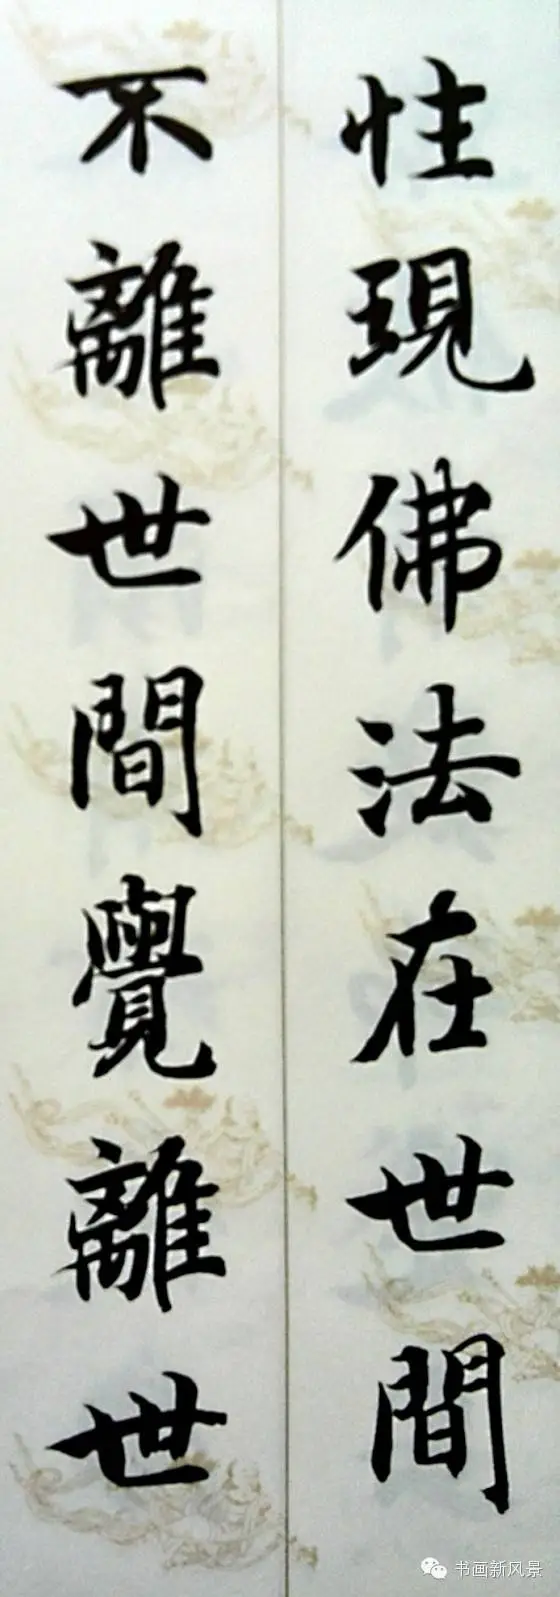 性現佛法在世間
不離世間覺離世
书画新风景